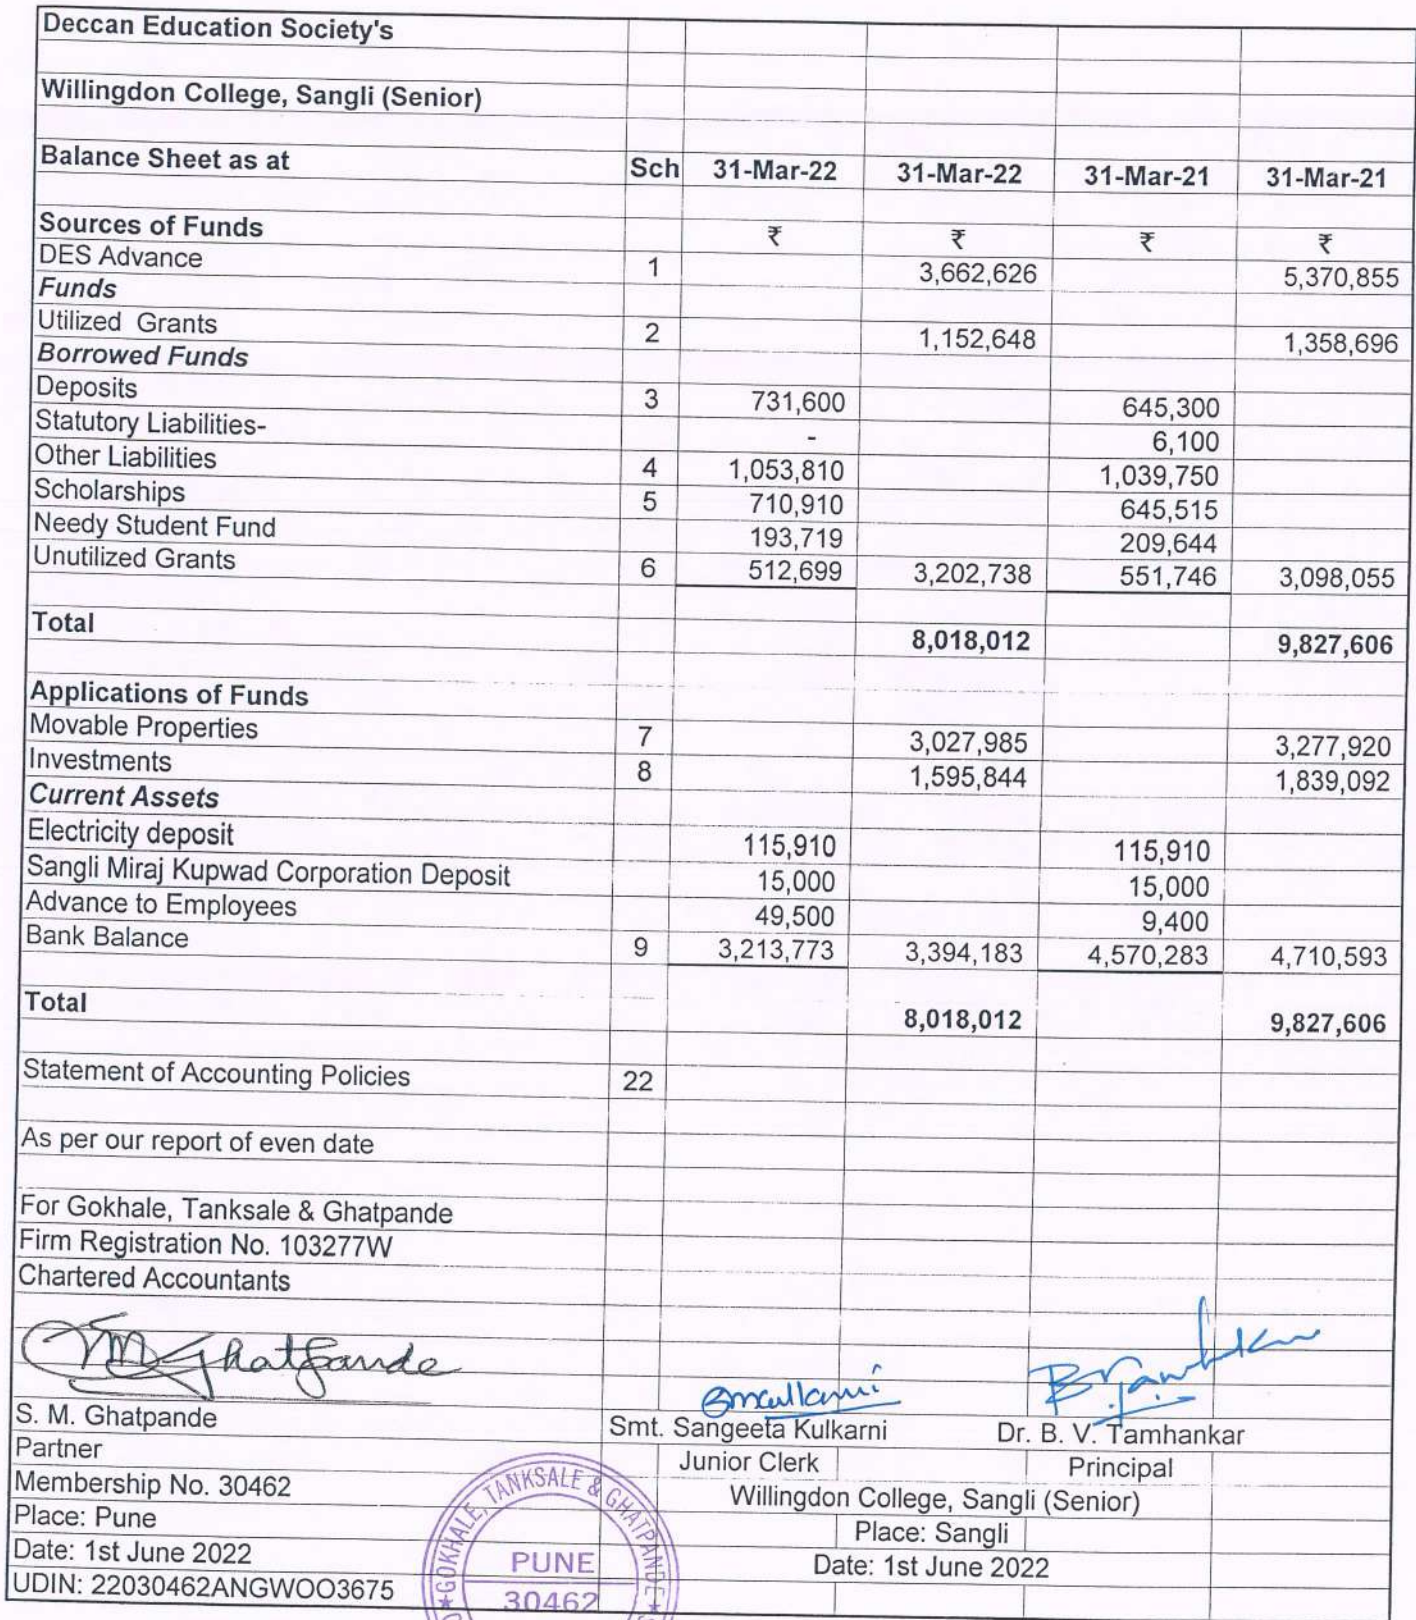 Deccan Education Society's
Willingdon College, Sangli (Senior)
Balance Sheet as at Sch 31-Mar-22 31-Mar-22 31-Mar-21 31-Mar-21
Sources of Funds ₹ ₹ ₹ ₹
DES Advance 1 3,662,626 5,370,855
Funds
Utilized Grants 2 1,152,648 1,358,696
Borrowed Funds
Deposits 3 731,600 645,300
Statutory Liabilities- - 6,100
Other Liabilities 4 1,053,810 1,039,750
Scholarships 5 710,910 645,515
Needy Student Fund 193,719 209,644
Unutilized Grants 6 512,699 3,202,738 551,746 3,098,055
Total 8,018,012 9,827,606
Applications of Funds
Movable Properties 7 3,027,985 3,277,920
Investments 8 1,595,844 1,839,092
Current Assets
Electricity deposit 115,910 115,910
Sangli Miraj Kupwad Corporation Deposit 15,000 15,000
Advance to Employees 49,500 9,400
Bank Balance 9 3,213,773 3,394,183 4,570,283 4,710,593
Total 8,018,012 9,827,606
Statement of Accounting Policies 22
As per our report of even date
For Gokhale, Tanksale & Ghatpande
Firm Registration No. 103277W
Chartered Accountants
SMGhatpande
SMKulkarni
S. M. Ghatpande Smt. Sangeeta Kulkarni Dr. B. V. Tamhankar
Partner Junior Clerk Principal
Membership No. 30462 Willingdon College, Sangli (Senior)
Place: Pune Place: Sangli
Date: 1st June 2022 Date: 1st June 2022
UDIN: 22030462ANGWOO3675
GOKHALE, TANKSALE & GHATPANDE
PUNE
30462